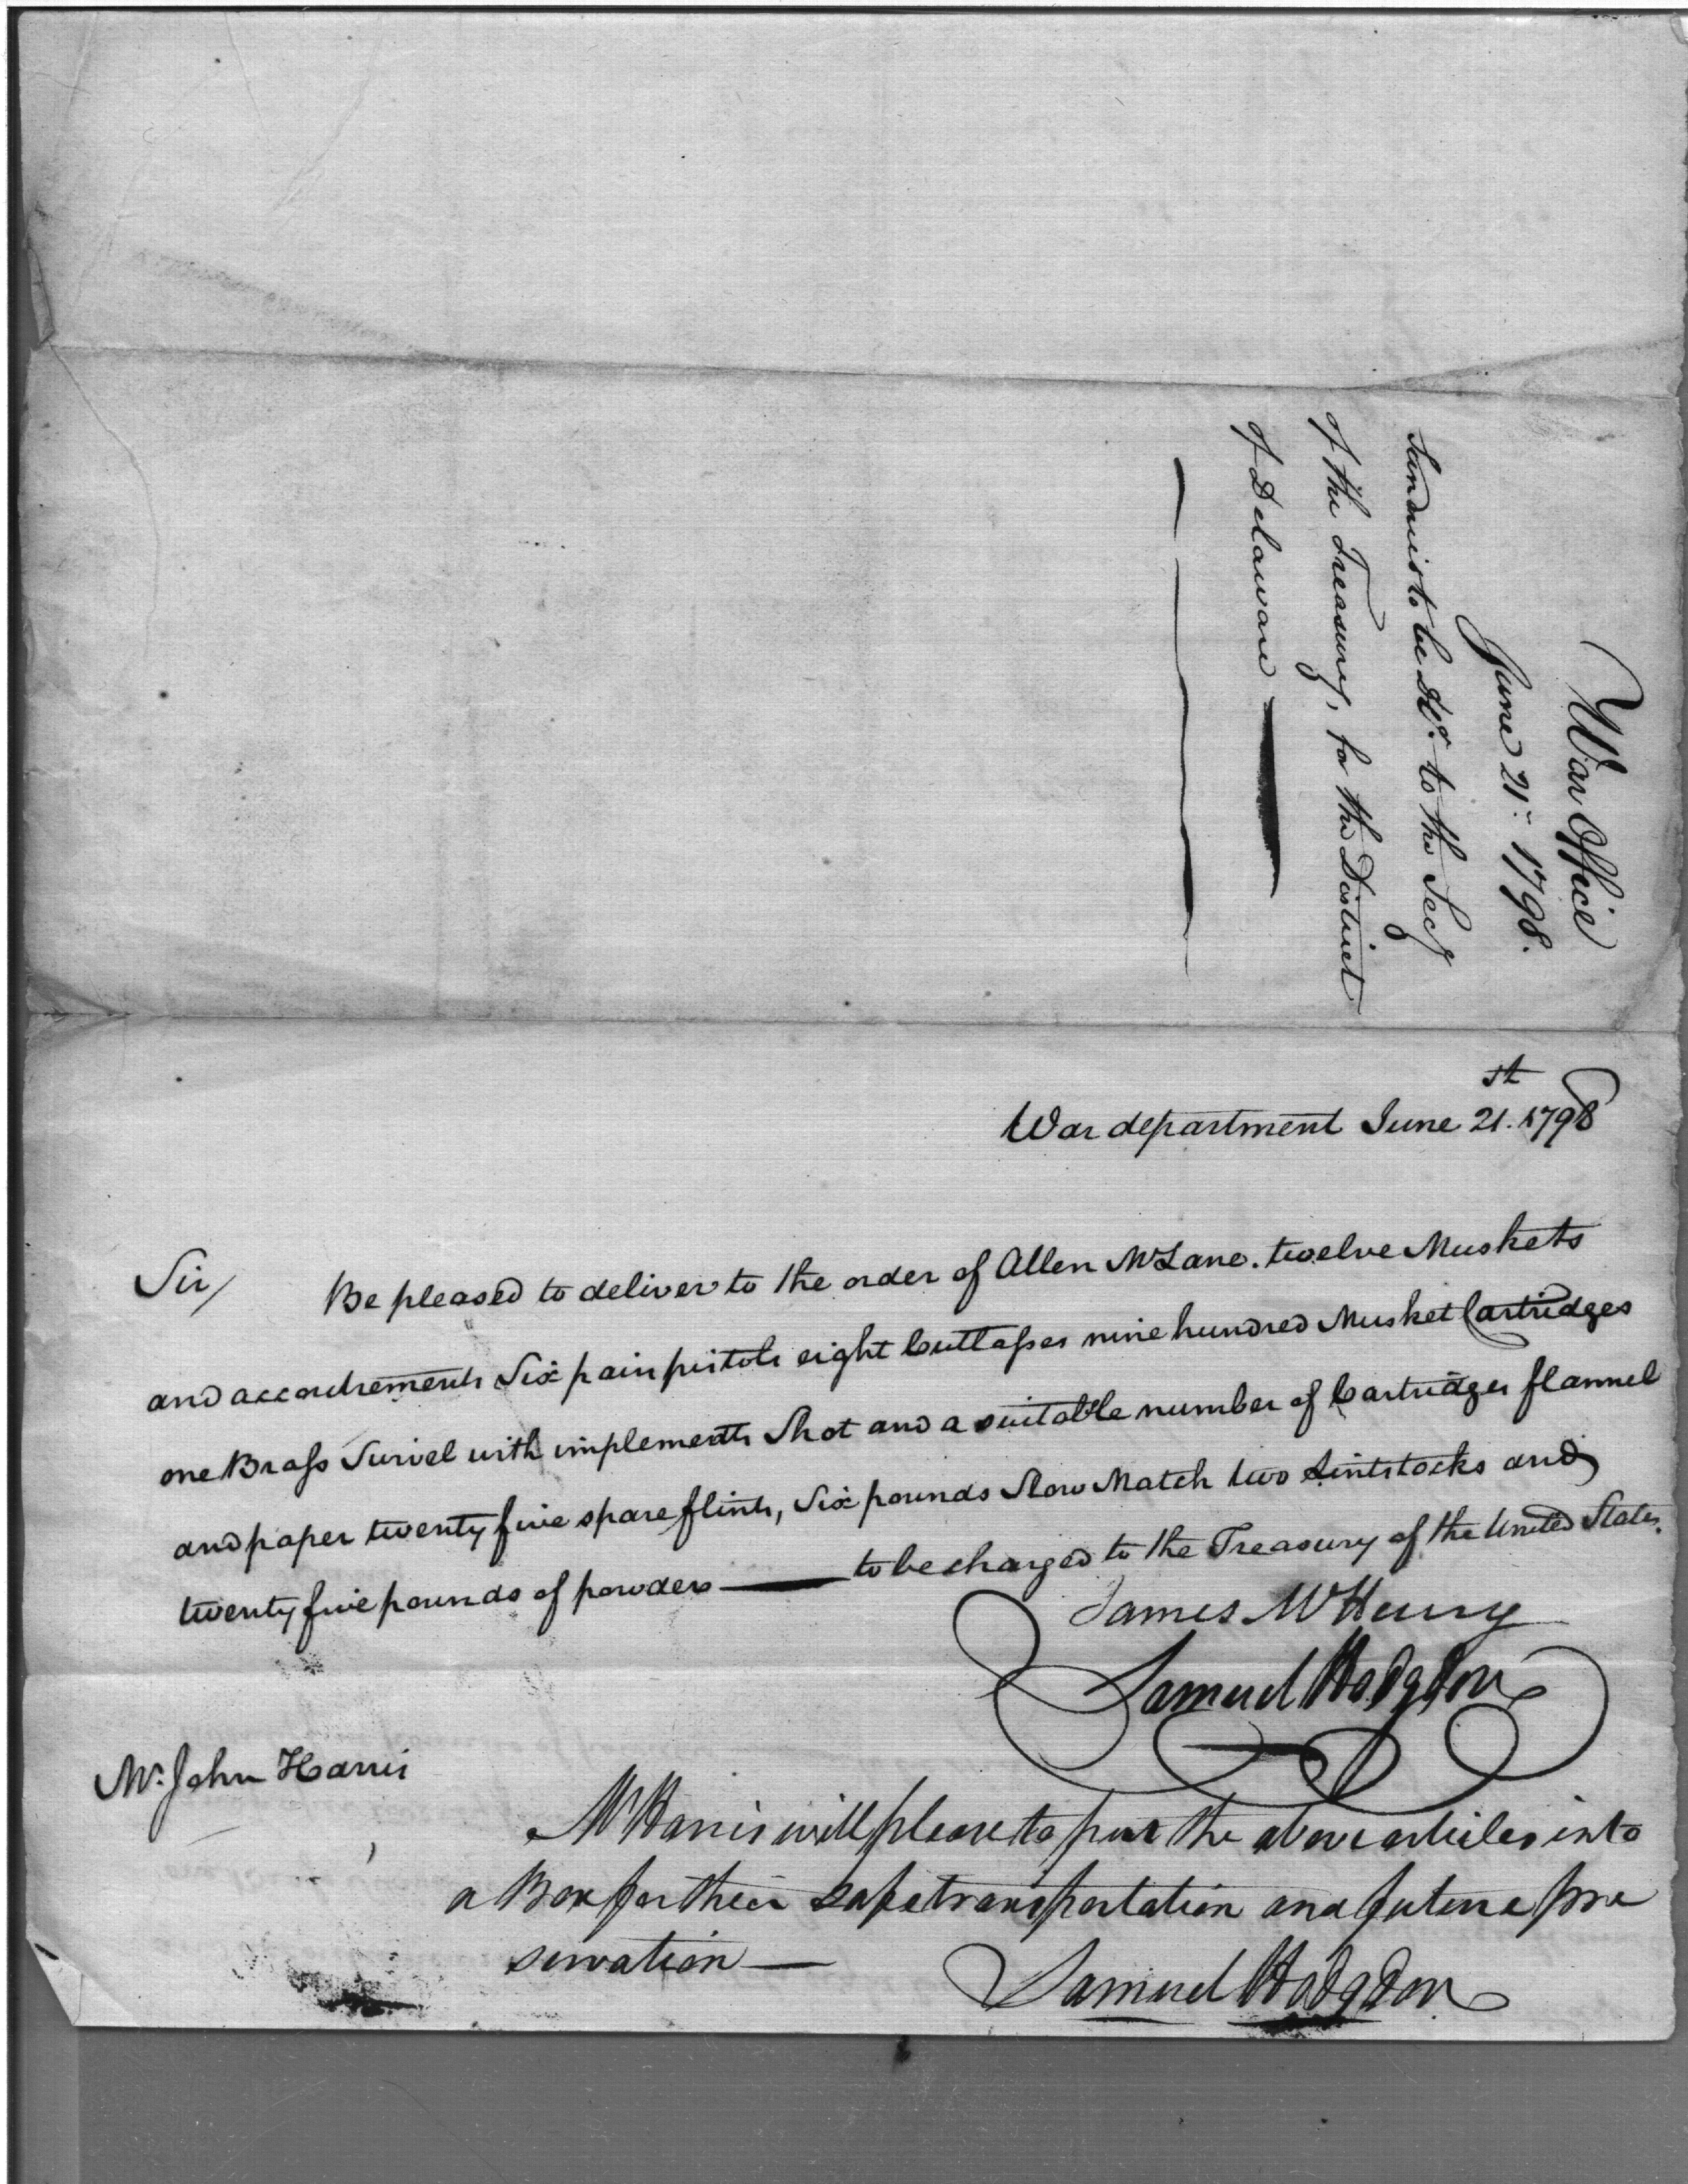 War Office
June 21st 1798.
Sundries to be Chgd. to the Secy
of the Treasury, for the District
of Delaware
War department June 21st. 1798
Sir/ Be pleased to deliver to the order of Allen McLane. twelve Muskets
and accoutrements Six pair pistols eight Cuttlasses nine hundred Musket Cartridges
one Brass Swivel with implements Shot and a suitable number of Cartridges flannel
and paper twenty five spare flints, Six pounds Slow Match two Lintstocks and
twenty five pounds of powder — to be charged to the Treasury of the United States.
James McHenry
Samuel Hodgdon
Mr. John Harris
Mr Harris will please to put the above articles into
a Box for their safe transportation and future pre
servation —
Samuel Hodgdon